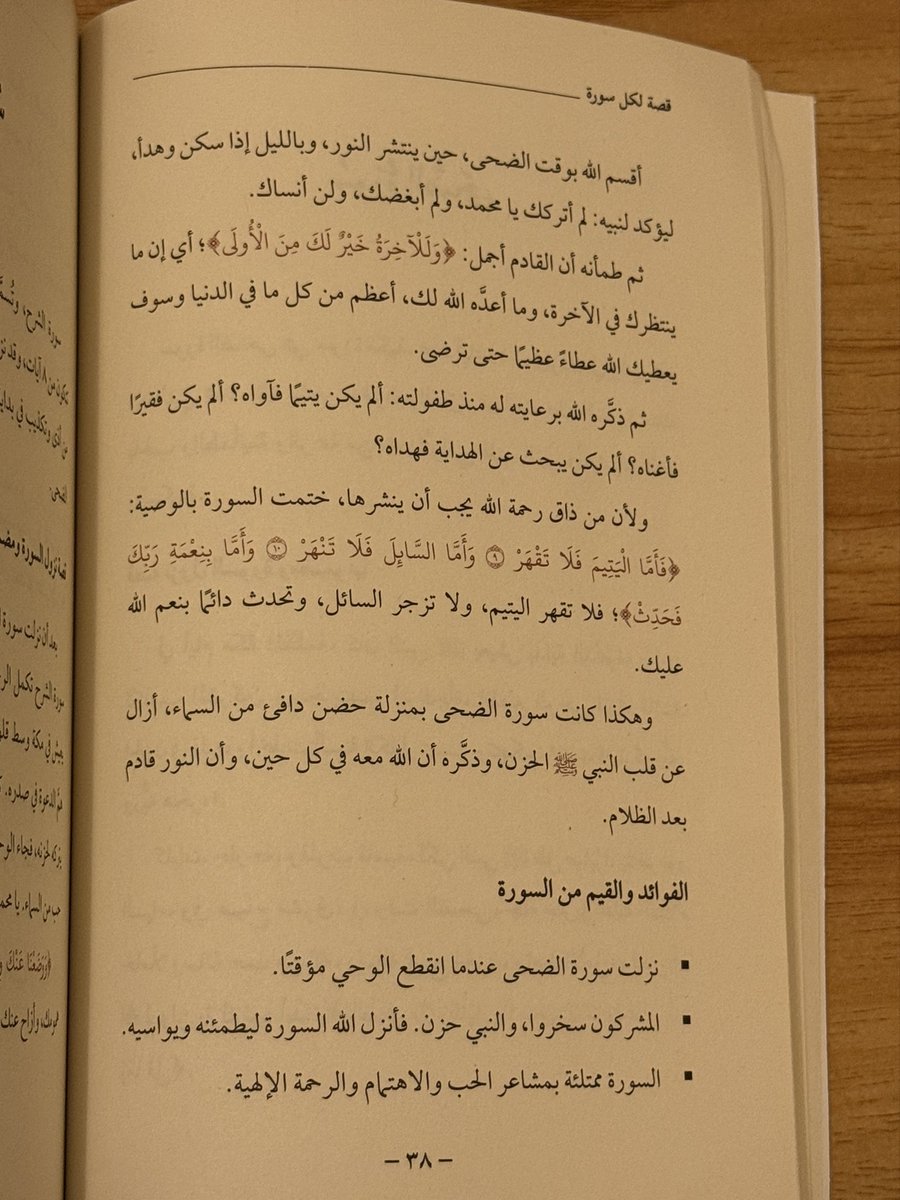 قصة لكل سورة
أقسم الله بوقت الضحى، حين ينتشر النور، وبالليل إذا سكن وهدأ،
ليؤكد لنبيه: لم أتركك يا محمد، ولم أبغضك، ولن أنساك.
ثم طمأنه أن القادم أجمل: ﴿وَلَلْآخِرَةُ خَيْرٌ لَكَ مِنَ الْأُولَى﴾؛ أي إن ما
ينتظرك في الآخرة، وما أعدَّه الله لك، أعظم من كل ما في الدنيا وسوف
يعطيك الله عطاءً عظيمًا حتى ترضى.
ثم ذكَّره الله برعايته له منذ طفولته: ألم يكن يتيمًا فآواه؟ ألم يكن فقيرًا
فأغناه؟ ألم يكن يبحث عن الهداية فهداه؟
ولأن من ذاق رحمة الله يجب أن ينشرها، ختمت السورة بالوصية:
﴿فَأَمَّا الْيَتِيمَ فَلَا تَقْهَرْ ۝٩ وَأَمَّا السَّائِلَ فَلَا تَنْهَرْ ۝١٠ وَأَمَّا بِنِعْمَةِ رَبِّكَ
فَحَدِّثْ﴾؛ فلا تقهر اليتيم، ولا تزجر السائل، وتحدث دائمًا بنعم الله
عليك.
وهكذا كانت سورة الضحى بمنزلة حضن دافئ من السماء، أزال
عن قلب النبي ﷺ الحزن، وذكَّره أن الله معه في كل حين، وأن النور قادم
بعد الظلام.
الفوائد والقيم من السورة
▪ نزلت سورة الضحى عندما انقطع الوحي مؤقتًا.
▪ المشركون سخروا، والنبي حزن. فأنزل الله السورة ليطمئنه ويواسيه.
▪ السورة ممتلئة بمشاعر الحب والاهتمام والرحمة الإلهية.
– ٣٨ –
سورة الشرح،
من ٨ آيات، وقد
بعد أن نزلت سورة
سورة الشرح تكمل
يعيش في مكة وسط
همَّ الدعوة في صدره.
حب من السماء. يا
﴿وَوَضَعْنَا عَنْكَ